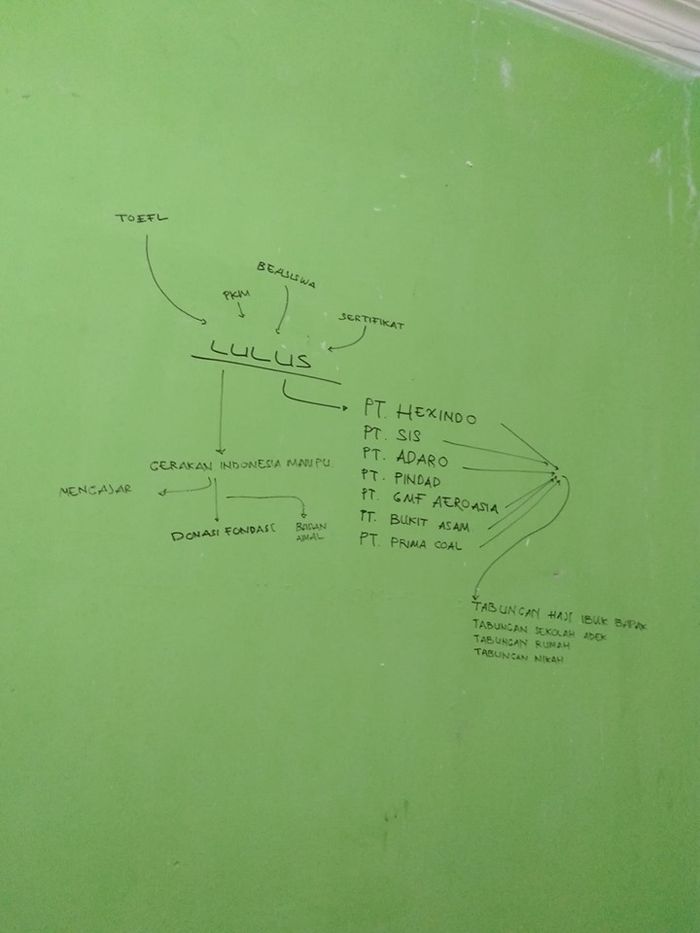 TOEFL
BEASISWA
PKM
SERTIFIKAT
LULUS
PT. HEXINDO
PT. SIS
PT. ADARO
PT. PINDAD
PT. GMF AEROASIA
PT. BUKIT ASAM
PT. PRIMA COAL
GERAKAN INDONESIA MAMPU
MENGAJAR
DONASI FONDASI
BADAN
AMAL
TABUNGAN HAJI IBUK BAPAK
TABUNGAN SEKOLAH ADEK
TABUNGAN RUMAH
TABUNGAN NIKAH